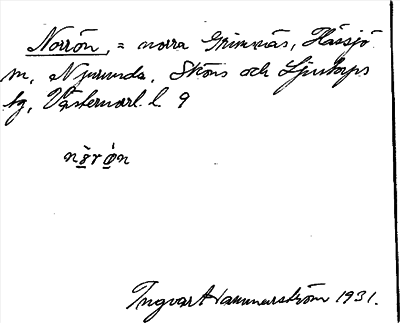 Norrön, = norra Grimnäs, Hässjö
m, Njurunda, Sköns och Ljustorps
tg, Västernorrl. l. 9
nòrǿn
Ingvar Hammarström 1931.